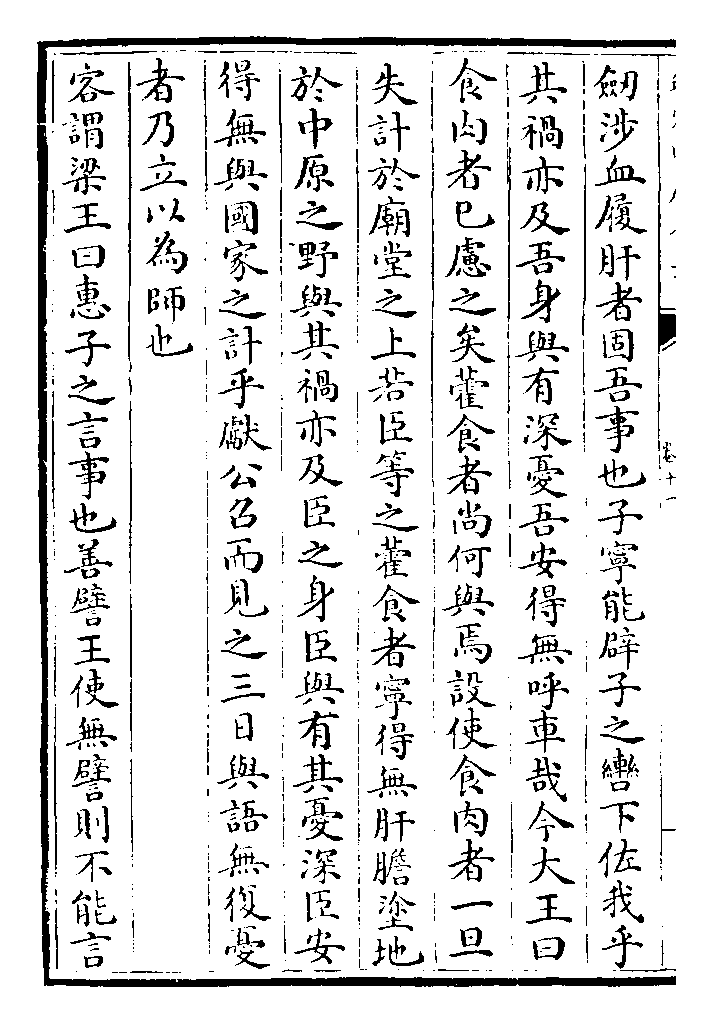 劒涉血履肝者固吾事也子寧能辟子之轡下佐我乎
其禍亦及吾身與有深憂吾安得無呼車哉今大王曰
食肉者已慮之矣藿食者尚何與焉設使食肉者一旦
失計於廟堂之上若臣等之藿食者寧得無肝膽塗地
於中原之野與其禍亦及臣之身臣與有其憂深臣安
得無與國家之計乎獻公召而見之三日與語無復憂
者乃立以為師也
客謂梁王曰惠子之言事也善譬王使無譬則不能言
卷十一